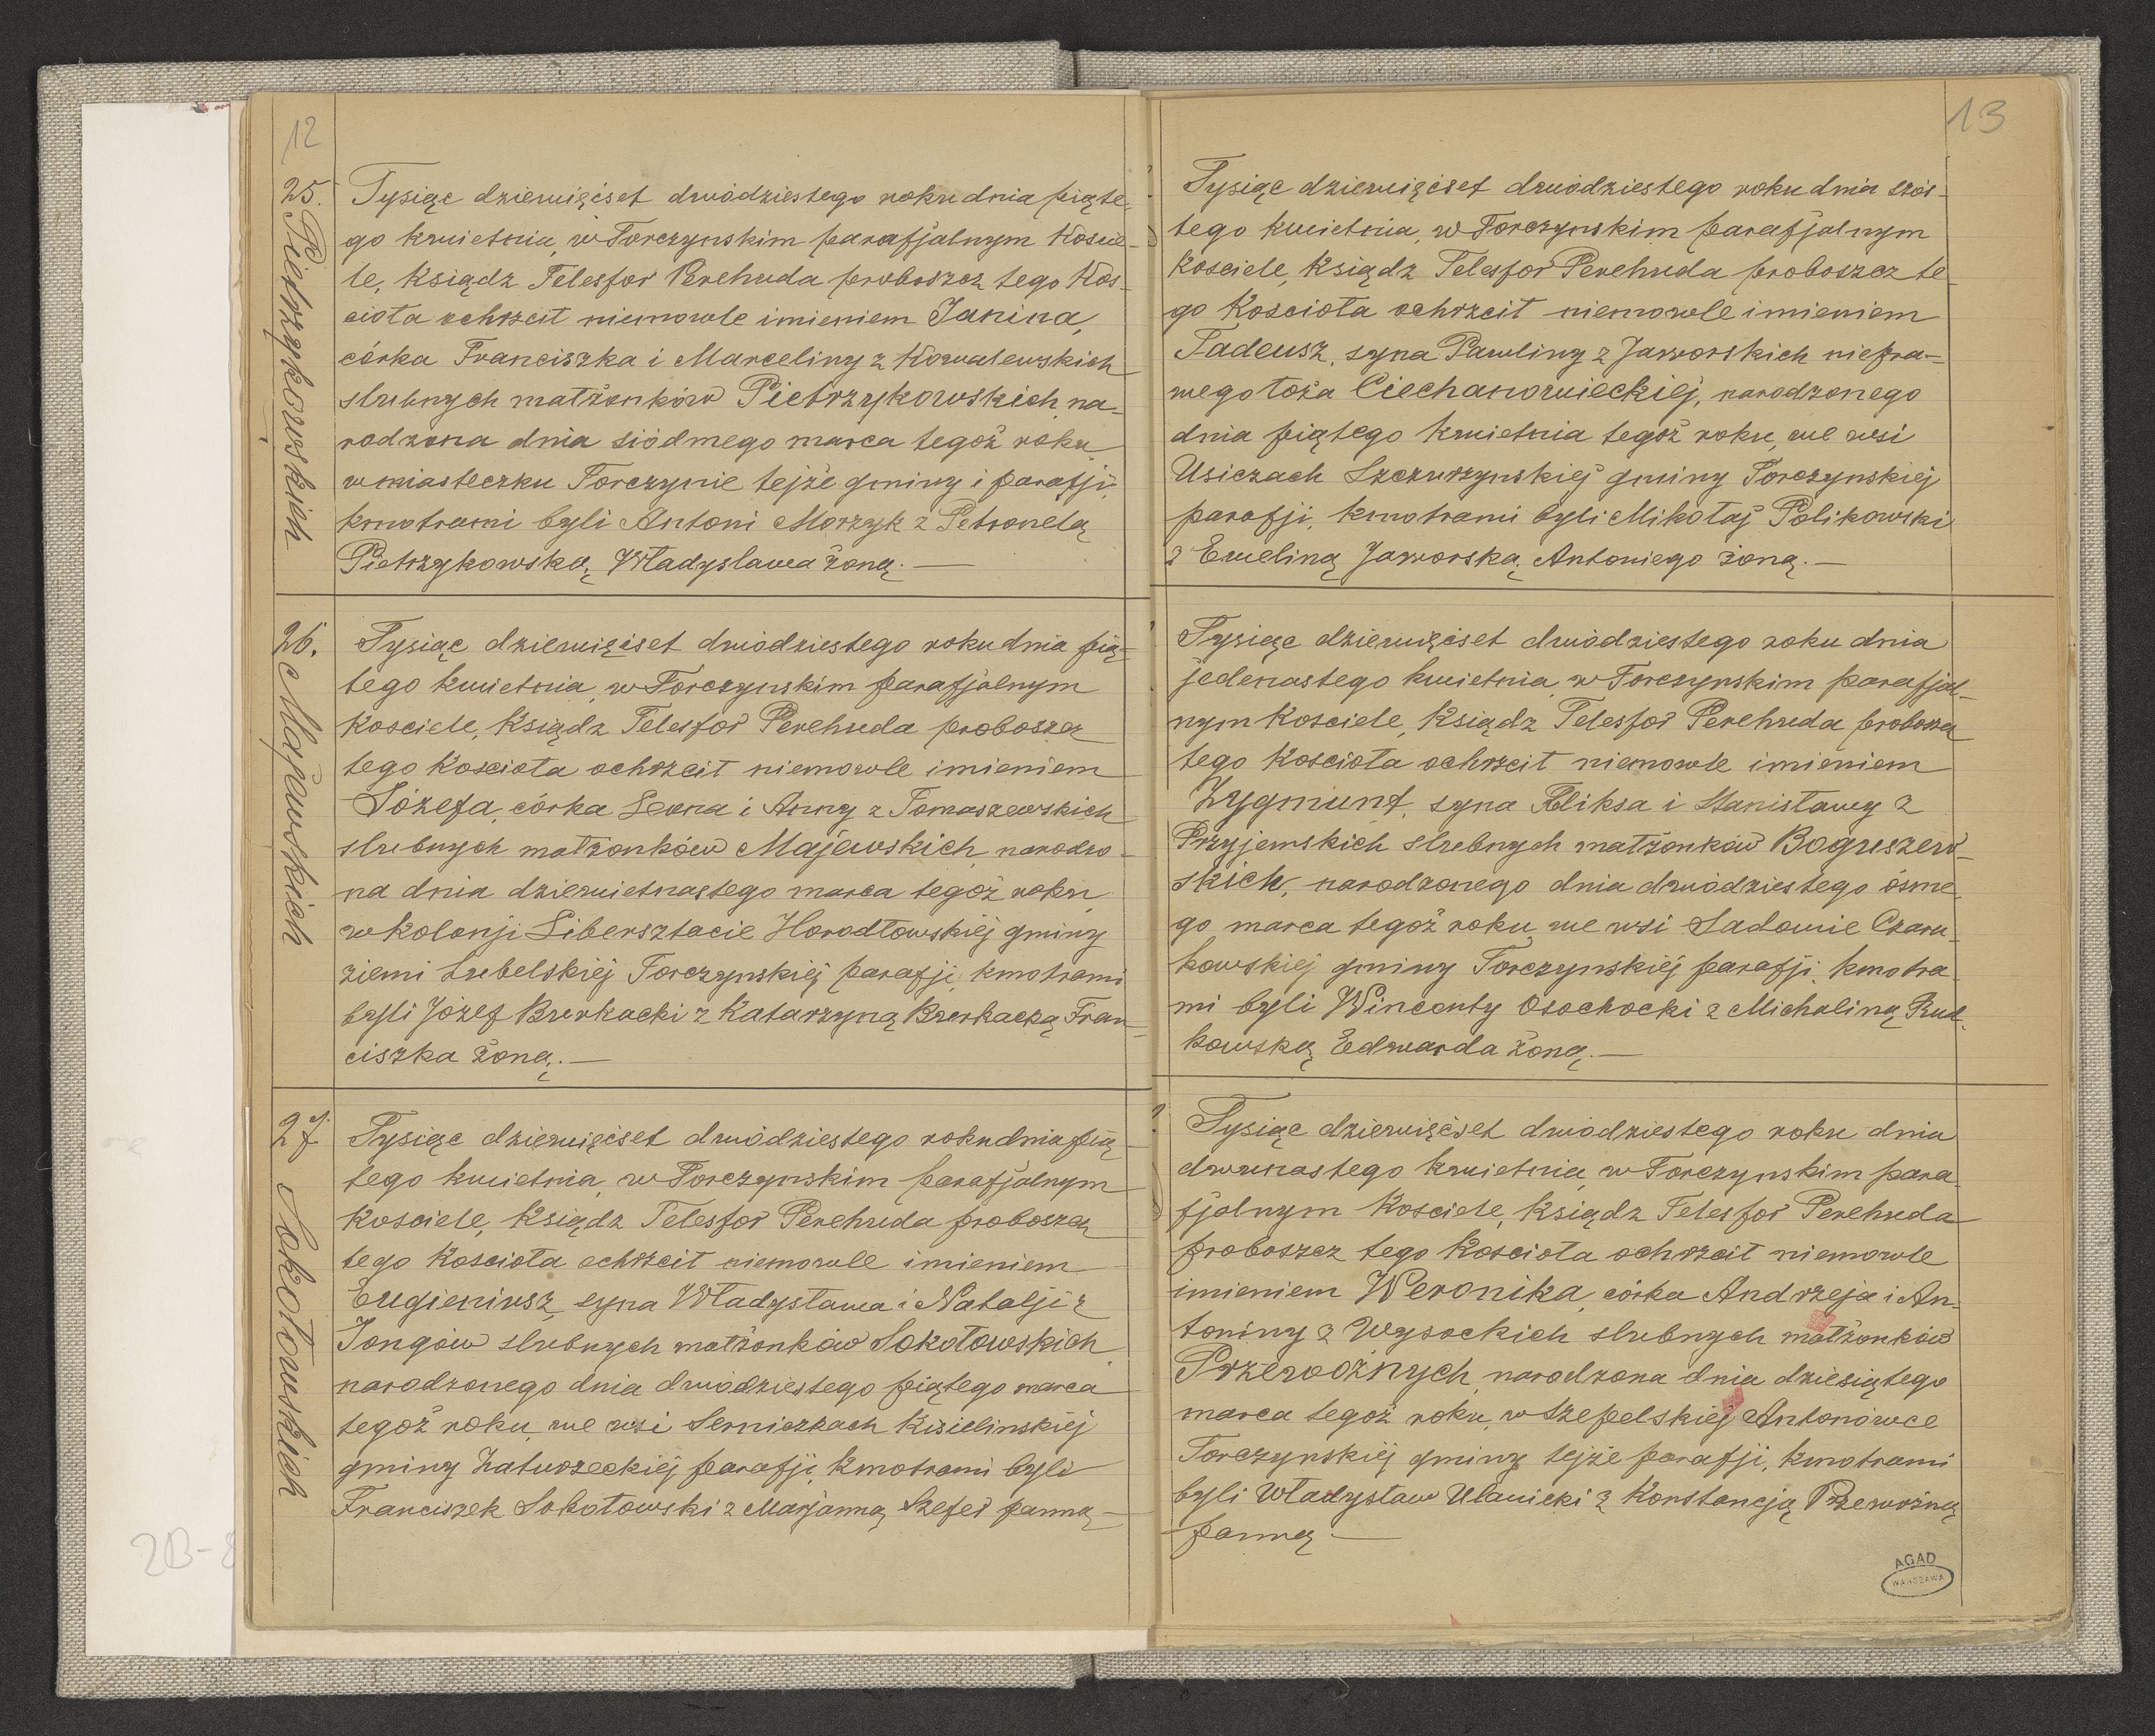 12
25. Pietrzykowskich
Tysiąc dziewięćset dwódziestego roku dnia piąte-
go kwietnia, w Torczynskim parafjalnym Koscie-
le, Ksiądz Telesfor Perehuda proboszcz tego Kos-
cioła ochrzcił niemowle imieniem Janina,
córka Franciszka i Marceliny z Kowalewskich
slubnych małżonków Pietrzykowskich, na-
rodzona dnia siódmego marca tegoż roku,
w miasteczku Torczynie tejże gminy i parafji,
kmotrami byli Antoni Morzyk z Petronelą
Pietrzykowską, Władyslawa żoną.—
26. Majewskich
Tysiąc dziewięćset dwódziestego roku dnia pią-
tego kwietnia, w Torczynskim parafjalnym
Kosciele, Ksiądz Telesfor Perehuda proboszcz
tego Koscioła ochrzcił niemowle imieniem
Józefa, córka Leona i Anny z Tomaszewskich
slubnych małżonków Majewskich, narodzo-
na dnia dziewietnastego marca tegoż roku,
w kolonji Libersztacie Horodłowskiéj gminy
ziemi Lubelskiéj Torczynskiéj parafji, kmotrami
byli Józef Burkacki z Katarzyną Burkacką Fran-
ciszka żoną.—
27. Sokołowskich
Tysiąc dziewięćset dwódziestego roku dnia pią-
tego kwietnia, w Torczynskim parafjalnym
Kosciele, Ksiądz Telesfor Perehuda proboszcz
tego Kosciola ochrzcił niemowle imieniem
Eugieniusz, syna Władysława i Natalji z
Jongów slubnych małżonków Sokołowskich,
narodzonego dnia dwódziestego piątego marca
tegoż roku, we wsi Serniczkach Kisielinskiéj
gminy Zaturzeckiéj parafji, kmotrami byli
Franciszek Sokołowski z Marjanną Szefer panną—
13
Tysiąc dziewięćset dwódziestego roku dnia szós-
tego kwietnia, w Torczynskim parafjalnym
Kosciele, Ksiądz Telesfor Perehuda proboszcz te-
go Kosciola ochrzcił niemowle imieniem
Tadeusz, syna Pawliny z Jaworskich niepra-
wego łoża Ciechanowieckiéj, narodzonego
dnia piątego kwietnia tegoż roku, we wsi
Usiczach Szczurzynskiéj gminy Torczynskiéj
parafji, kmotrami byli Mikołaj Polikowski
z Eweliną Jaworską, Antoniego żoną.—
Tysiąc dziewięćset dwódziestego roku dnia
jedenastego kwietnia, w Torczynskim parafjal-
nym Kosciele, Ksiądz Telesfor Perehuda proboszcz
tego Kosciola ochrzcił niemowle imieniem
Zygmunt, syna Feliksa i Stanisławy z
Przyjemskich slubnych małżonków Boguszew-
skich, narodzonego dnia dwódziestego ósme-
go marca tegoż roku, we wsi Sadowie Czaru-
kowskiéj gminy Torczynskiéj parafji, kmotra-
mi byli Wincenty Osochocki z Michaliną Rud-
kowską Edwarda żoną.—
Tysiąc dziewięćset dwódziestego roku dnia
dwunastego kwietnia, w Torczynskim para-
fjalnym Kosciele, Ksiądz Telesfor Perehuda
proboszcz tego Kosciola ochrzcił niemowle
imieniem Weronika, córka Andrzeja i An-
toniny z Wysockich slubnych małżonków
Przewoźnych, narodzona dnia dziesiątego
marca tegoż roku, w Szepelskiéj Antonówce
Torczynskiéj gminy tejże parafji, kmotrami
byli Władysław Ulanicki z Konstancją Przewoźną
panną.—
AGAD
WARSZAWA